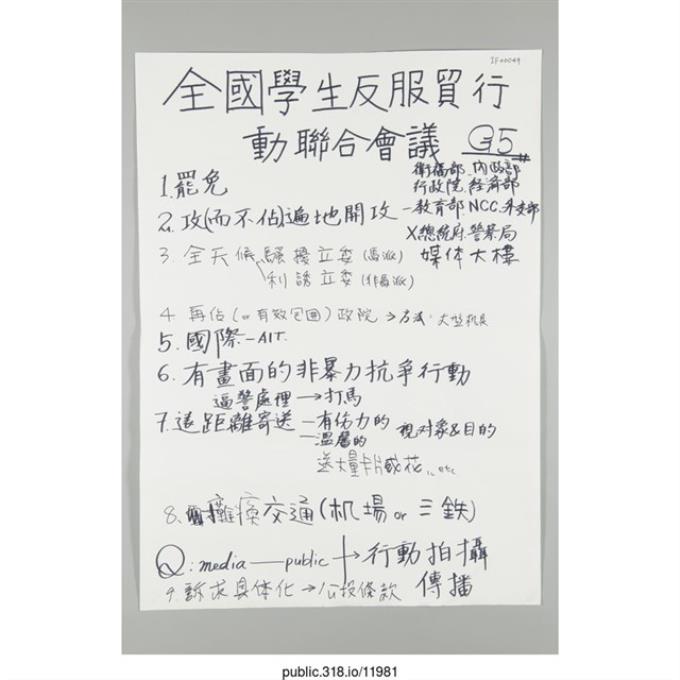 IF00049
全國學生反服貿行
動聯合會議 G5#
1.罷免
衛福部、內政部
行政院、經濟部
2.攻(而不佔)遍地開攻 — 教育部、NCC、外交部
X總統府、警察局
3.全天候騷擾立委(馬派) 媒体大樓
利誘立委(非馬派)
4.再佔(or有效包圍)政院→方法:大型机具
5.國際—AIT.
6.有畫面的非暴力抗爭行動
逼警處理→打馬
7.遠距離寄送—有佑力的
—溫馨的 視对象&目的
送大量卡片或花... etc
8.攤瘓交通(机場 or 三鉄)
Q:media—public→行動拍攝
9.訴求具体化→公投條款 傳播
public.318.io/11981